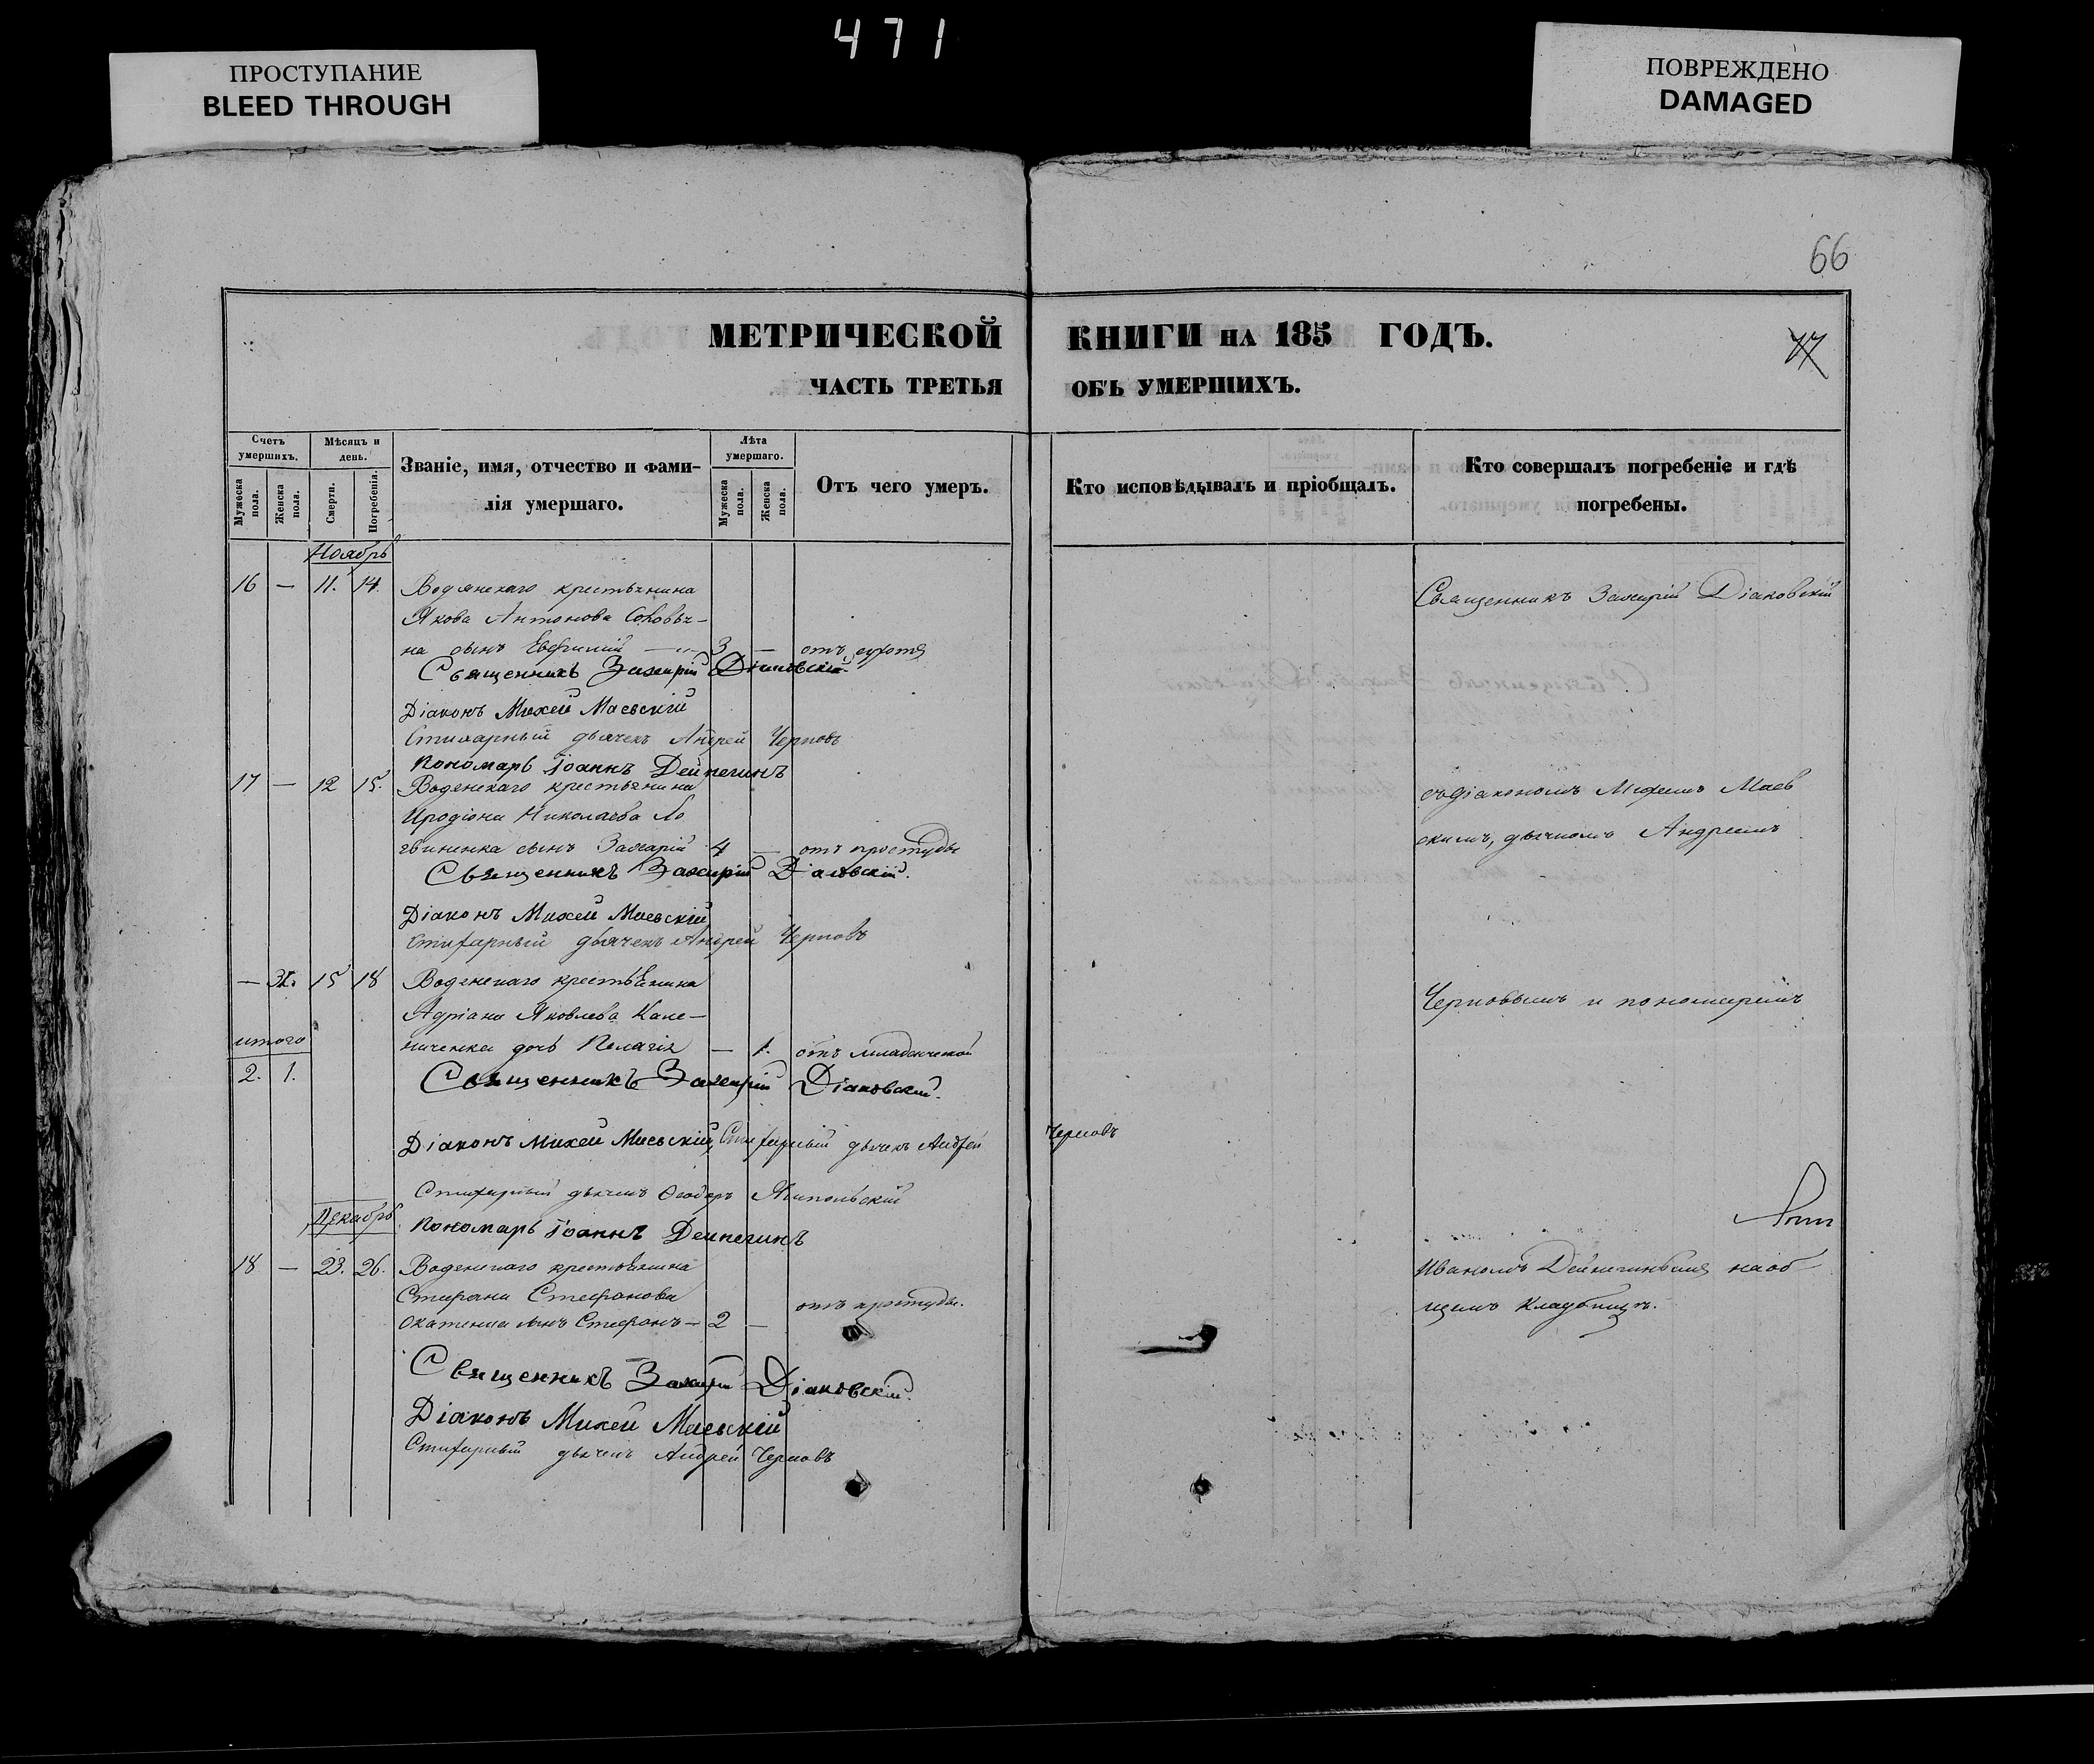 471
ПРОСТУПАНИЕ
BLEED THROUGH
ПОВРЕЖДЕНО
DAMAGED
66
МЕТРИЧЕСКОЙ КНИГИ НА 185 ГОДЪ.
ЧАСТЬ ТРЕТЬЯ ОБЪ УМЕРШИХЪ.
Счетъ умершихъ.
Мужеска пола.
Женска пола.
Мѣсяцъ и день.
Смерти.
Погребенія.
Званіе, имя, отчество и фами-
лія умершаго.
Лѣта умершаго.
Мужеска пола.
Женска пола.
Отъ чего умеръ.
Кто исповѣдывалъ и пріобщалъ.
Кто совершалъ погребеніе и гдѣ
погребены.
Ноябрь
16 — 11. 14. Водянскаго крестьянина
Якова Антонова
на сынъ Евфимій 3 — отъ
Священникъ Захарій Діаковскій
Діаконъ Михей Маевскій
Стихарный дьячекъ Андрей Черновъ
Пономарь Іоаннъ Дейнегинъ
17 — 12 15. Водянскаго крестьянина
Иродіона Николаева Ло
гвиненка сынъ Захарій 4 — отъ простуды
Священникъ Захарій Діаковскій.
Діаконъ Михей Маевскій
Стихарный дьячекъ Андрей Черновъ
— 15 18 Водянскаго крестьянина
Адріана Яковлева
дочь Пелагія — 1. отъ младенческой
итого
2. 1.
Священникъ Захарій Діаковскій.
Діаконъ Михей Маевскій, Стихарный дьячекъ Андрей Черновъ
Стихарный дьячекъ Ѳеодоръ
Пономарь Іоаннъ Дейнегинъ
Декабрь
18 — 23. 26. Водянскаго крестьянина
Стефана Стефанова
сынъ Стефанъ — 2 — отъ простуды.
Священникъ Захарій Діаковскій.
Діаконъ Михей Маевскій
Стихарный дьячекъ Андрей Черновъ
Священникъ Захарій Діаковскій
съ діакономъ Михеемъ Маев
скимъ, дьячкомъ Андреемъ
Черновымъ и пономаремъ
Иваномъ Дейнегинымъ на об
щемъ кладбищѣ.